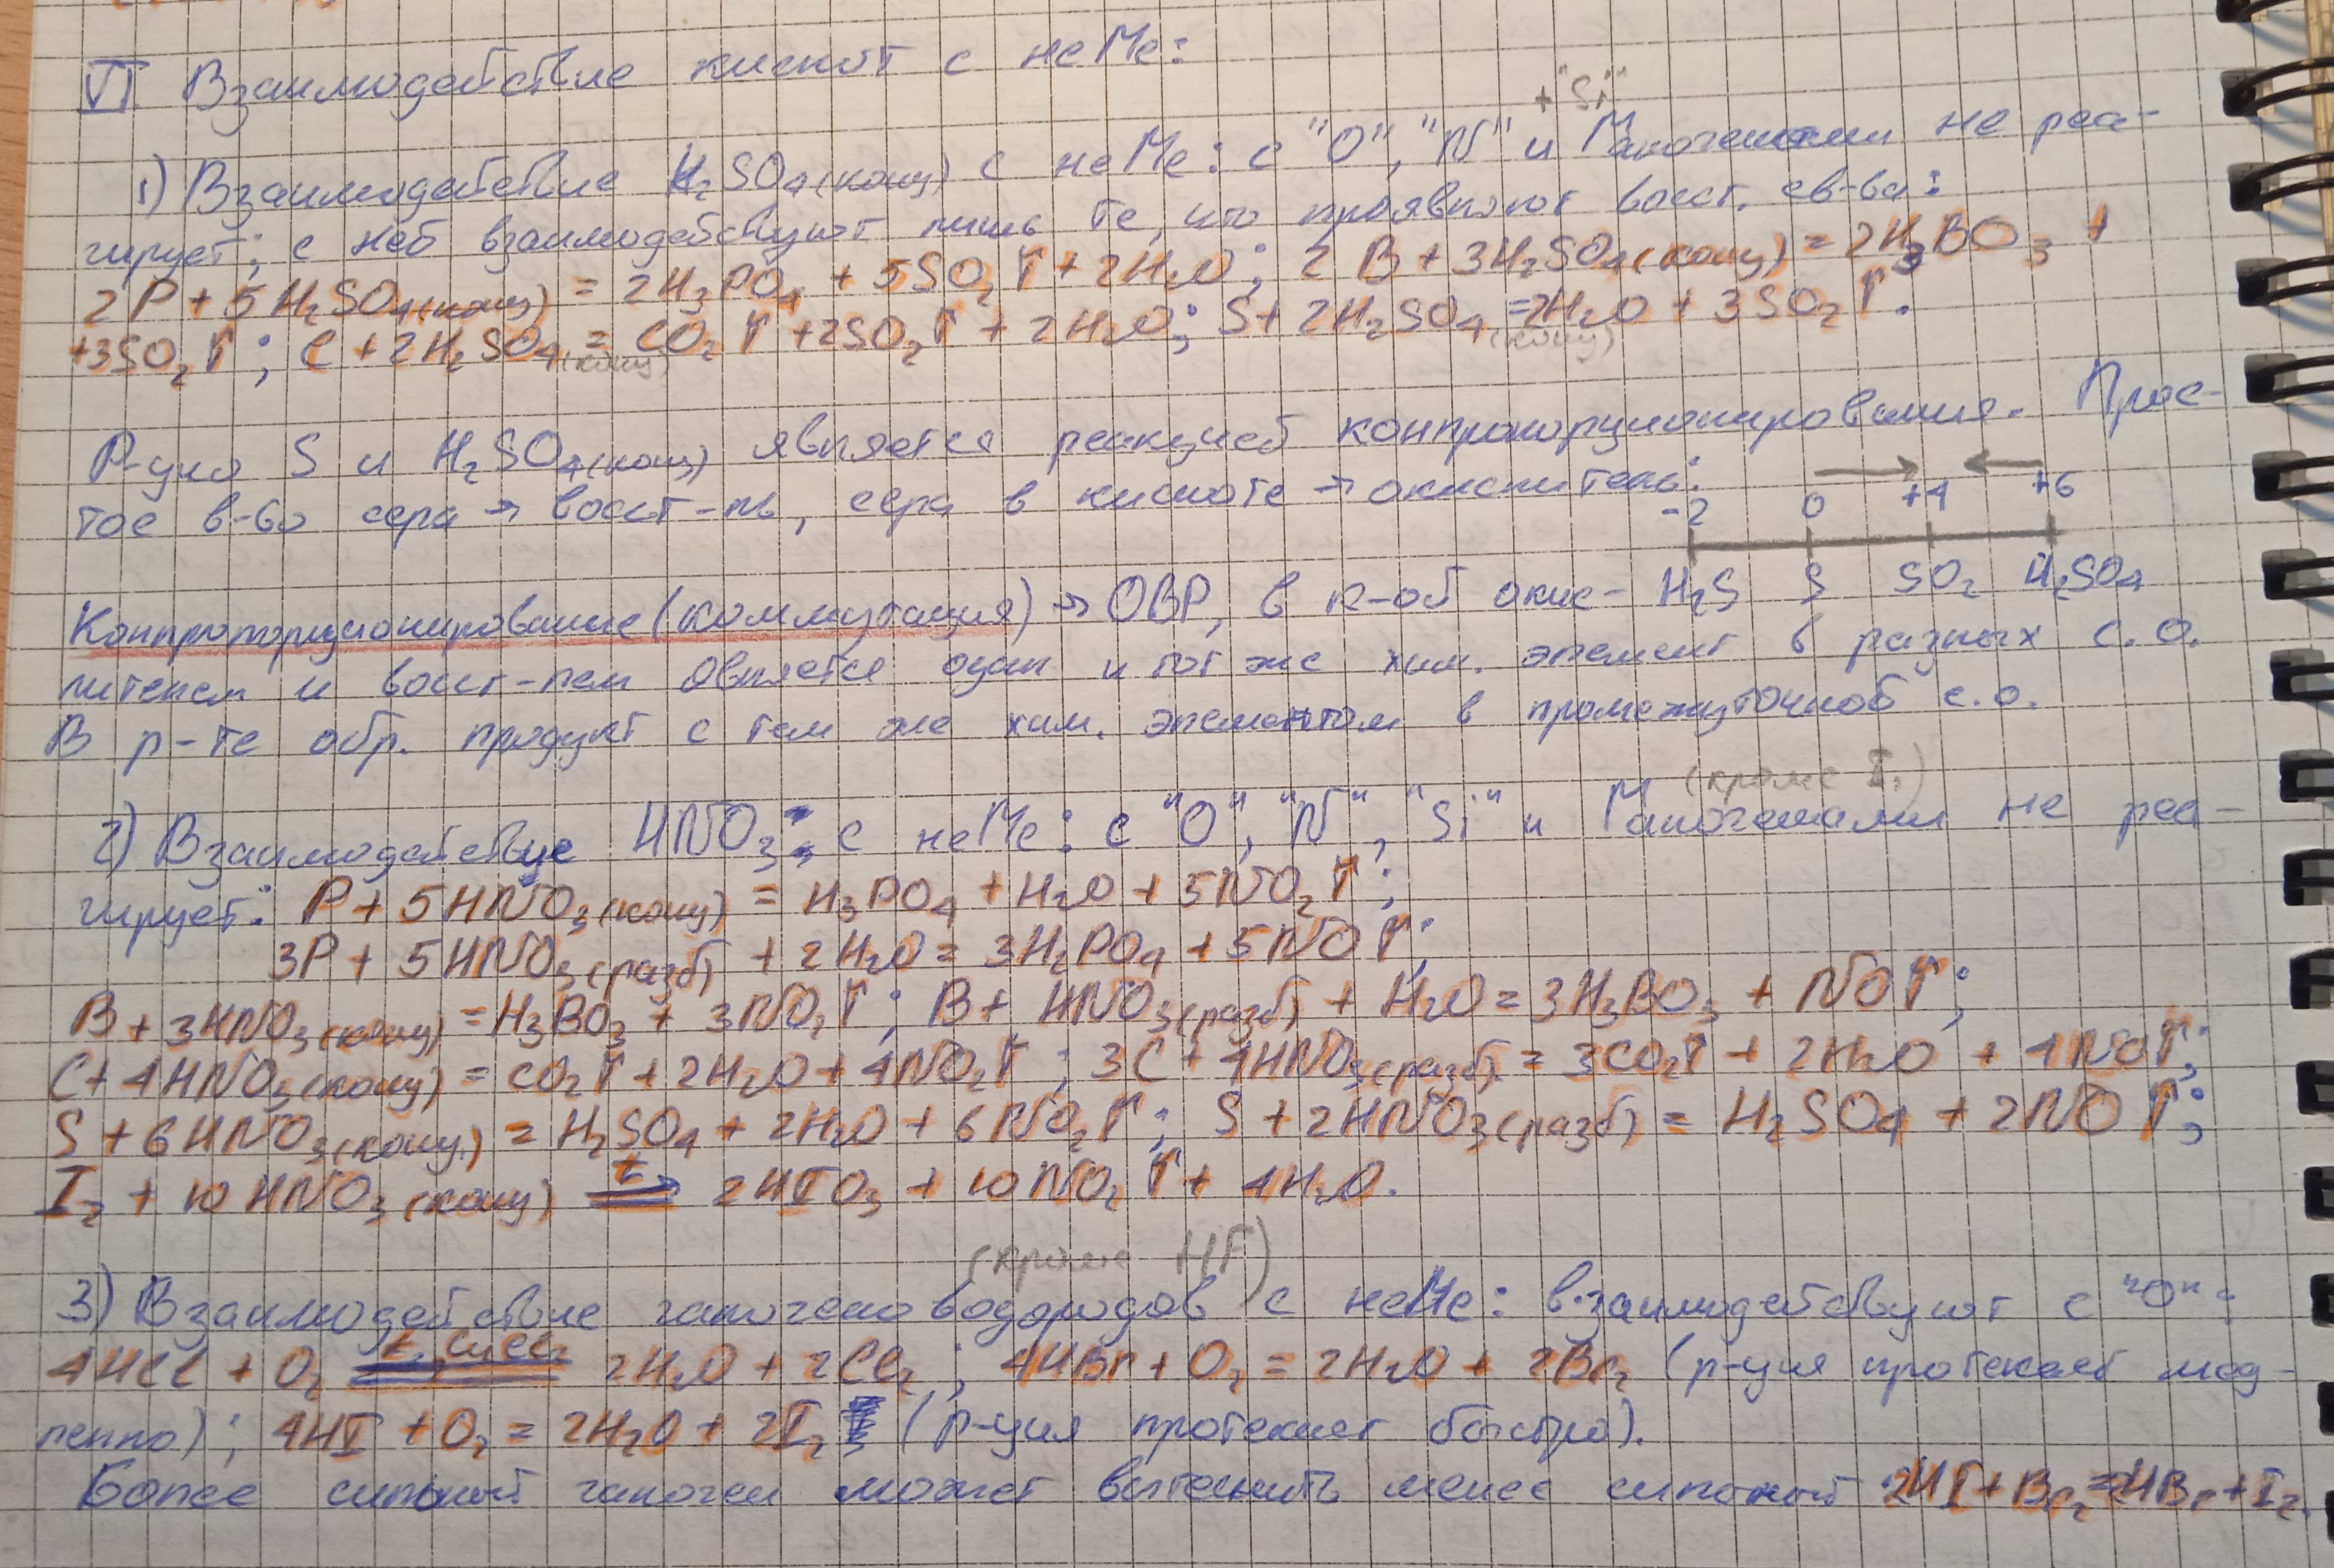 VI Взаимодействие кислот с неМе:
+ "Si"
1) Взаимодействие H₂SO₄(конц) с неМе: с "O", "N" и Галогенами не реа-
гирует; с ней взаимодействуют лишь те, что проявляют восст. св-ва:
2P + 5H₂SO₄(конц) = 2H₃PO₄ + 5SO₂↑ + 2H₂O; 2B + 3H₂SO₄(конц) = 2H₃BO₃ +
+3SO₂↑; C + 2H₂SO₄(конц) = CO₂↑ + 2SO₂↑ + 2H₂O; S + 2H₂SO₄(конц) = 2H₂O + 3SO₂↑.
Р-ция S и H₂SO₄(конц) является реакцией конпропорционирования. Прос-
тое в-во сера → восст-ль, сера в кислоте → окислитель:
-2 0 +4 +6
H₂S S SO₂ H₂SO₄
Конпропорционирование (коммутация) → ОВР, в к-ой окис-
лителем и восст-лем является один и тот же хим. элемент в разных с.о.
В р-те обр. продукт с тем же хим. элементом в промежуточной с.о.
(кроме I₂)
2) Взаимодействие HNO₃ с неМе: с "O", "N", "Si" и Галогенами не реа-
гирует: P + 5HNO₃(конц) = H₃PO₄ + H₂O + 5NO₂↑;
3P + 5HNO₃(разб) + 2H₂O = 3H₃PO₄ + 5NO↑;
B + 3HNO₃(конц) = H₃BO₃ + 3NO₂↑; B + HNO₃(разб) + H₂O = 3H₃BO₃ + NO↑;
C + 4HNO₃(конц) = CO₂↑ + 2H₂O + 4NO₂↑; 3C + 4HNO₃(разб) = 3CO₂↑ + 2H₂O + 4NO↑;
S + 6HNO₃(конц.) = H₂SO₄ + 2H₂O + 6NO₂↑; S + 2HNO₃(разб) = H₂SO₄ + 2NO↑;
I₂ + 10HNO₃(конц) =t=> 2HIO₃ + 10NO₂↑ + 4H₂O.
(кроме HF)
3) Взаимодействие галогеноводородов с неМе: взаимодействуют с "O":
4HCl + O₂ =t, CuCl₂= 2H₂O + 2Cl₂; 4HBr + O₂ = 2H₂O + 2Br₂ (р-ция протекает мед-
ленно); 4HI + O₂ = 2H₂O + 2I₂ (р-ция протекает быстро).
Более сильный галоген может вытеснить менее сильный: 2HI + Br₂ = 2HBr + I₂.